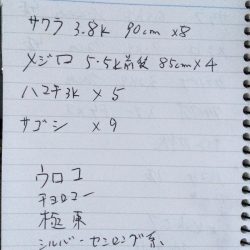 サワラ 3.8k 90cm ×8
メジロ 5.5k前後 85cm×4
ハマチ3k × 5
サゴシ ×9
ウロコ
チョロコー
極東
シルバー センロング系